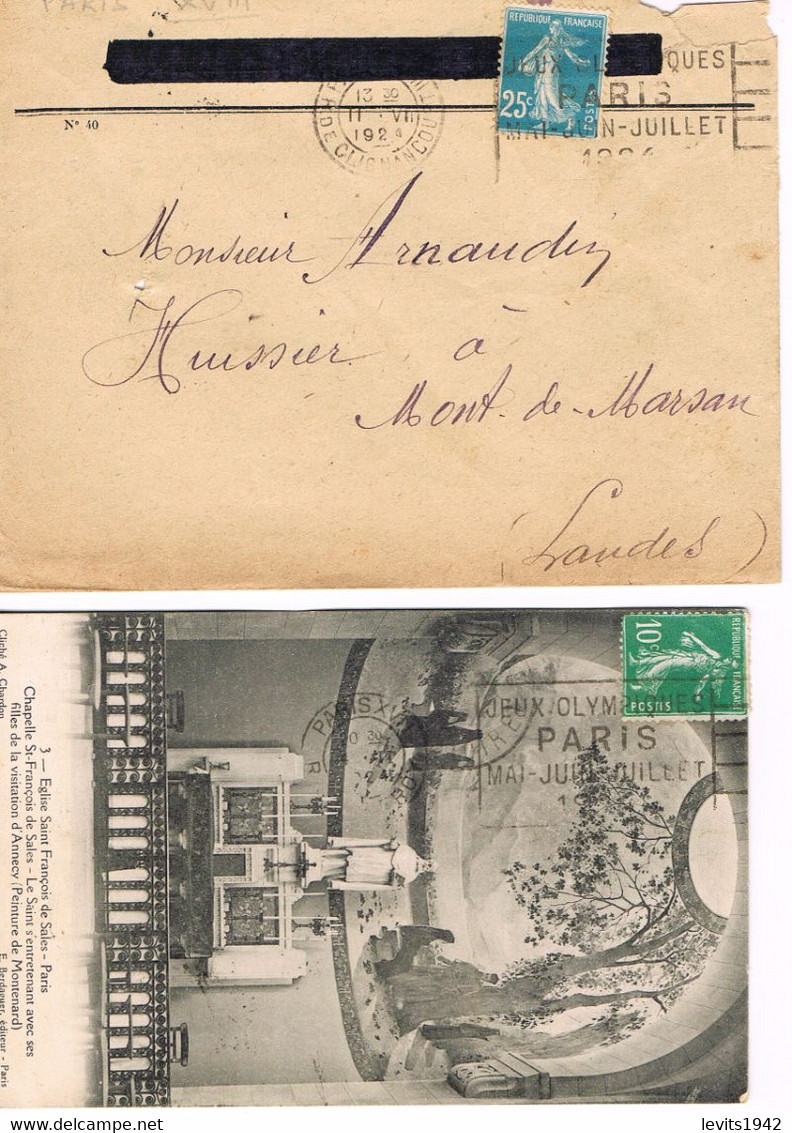 PARIS XVIII
REPUBLIQUE FRANÇAISE
25c
POSTES
JEUX OLYMPIQUES
PARIS
MAI-JUIN-JUILLET
1924
13 30
11 - VII
1924
R. DE CLIGNANCOURT
N° 40
Monsieur Arnaudin
Huissier à
Mont-de-Marsan
(Landes)
REPUBLIQUE FRANÇAISE
10c
POSTES
JEUX OLYMPIQUES
PARIS
MAI-JUIN-JUILLET
PARIS X
3 — Eglise Saint François de Sales - Paris
Chapelle St-François de Sales - Le Saint s'entretenant avec ses
filles de la visitation d'Annecy (Peinture de Montenard)
Cliché A. Chardon
E. Berdaguer, éditeur - Paris
levits1942